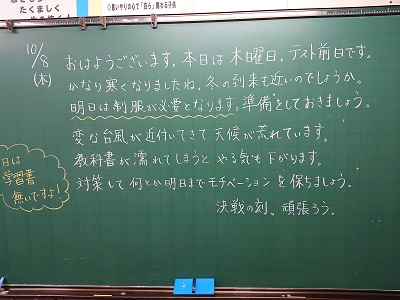 たくましく
10/8
(木)
おはようございます。本日は木曜日。テスト前日です。
かなり寒くなりましたね。冬の到来も近いのでしょうか。
明日は制服が必要となります。準備をしておきましょう。
変な台風が近付いてきて天候が荒れています。
教科書が濡れてしまうとやる気も下がります。
対策して何とか明日までモチベーションを保ちましょう。
決戦の刻。頑張ろう。
日は
学習書
無いですよ!